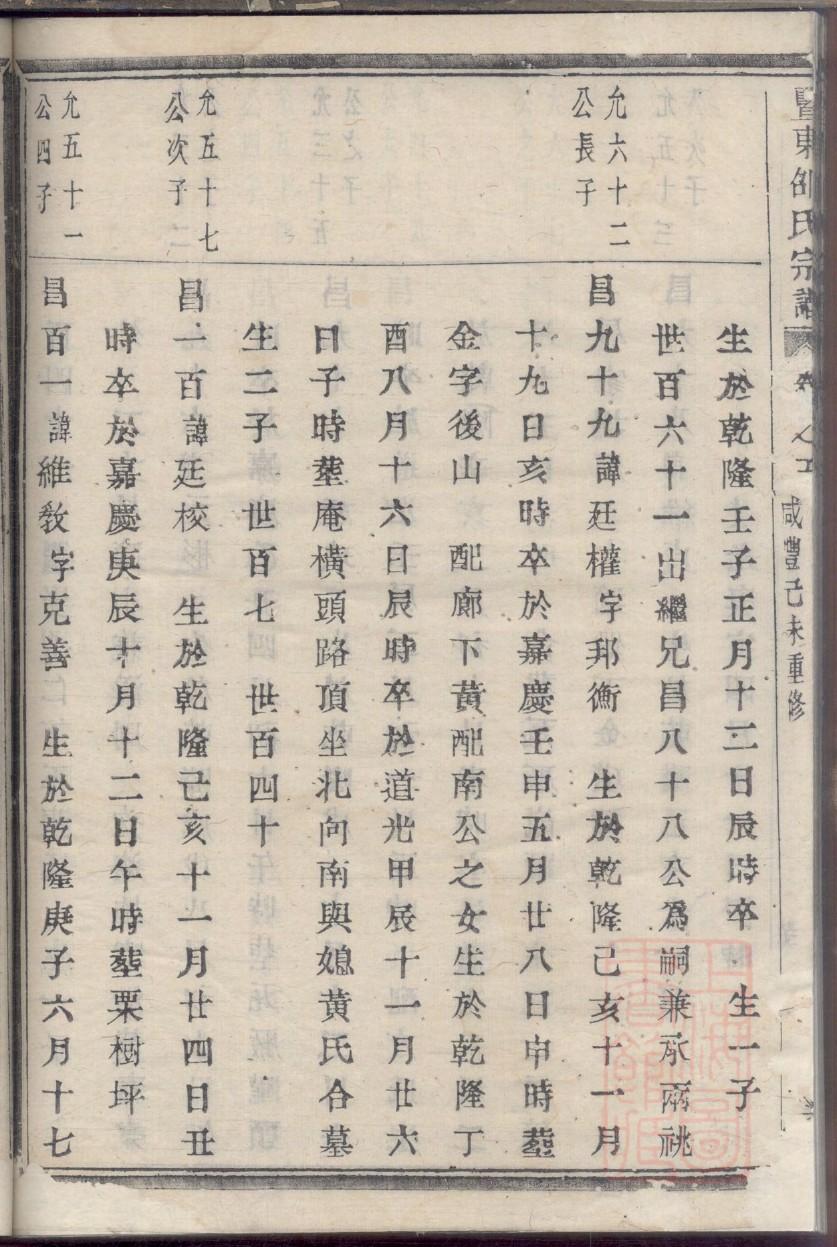 暨東邵氏宗譜 咸豐己未重修
生於乾隆壬子正月十二日辰時卒 生一子
世百六十一出繼兄昌八十八公爲嗣兼承兩祧
允六十二
公長子
昌九十九諱廷權字邦衡 生於乾隆己亥十一月
十九日亥時卒於嘉慶壬申五月廿八日申時塟
金字後山 配廊下黃配南公之女生於乾隆丁
酉八月十六日辰時卒於道光甲辰十一月廿六
日子時塟庵橫頭路頂坐北向南與媳黃氏合墓
生二子 世百七 世百四十
允五十七
公次子
昌一百諱廷校 生於乾隆己亥十一月廿四日丑
時卒於嘉慶庚辰十月十二日午時塟栗樹坪
允五十一
公四子
昌百一諱維教字克善 生於乾隆庚子六月十七